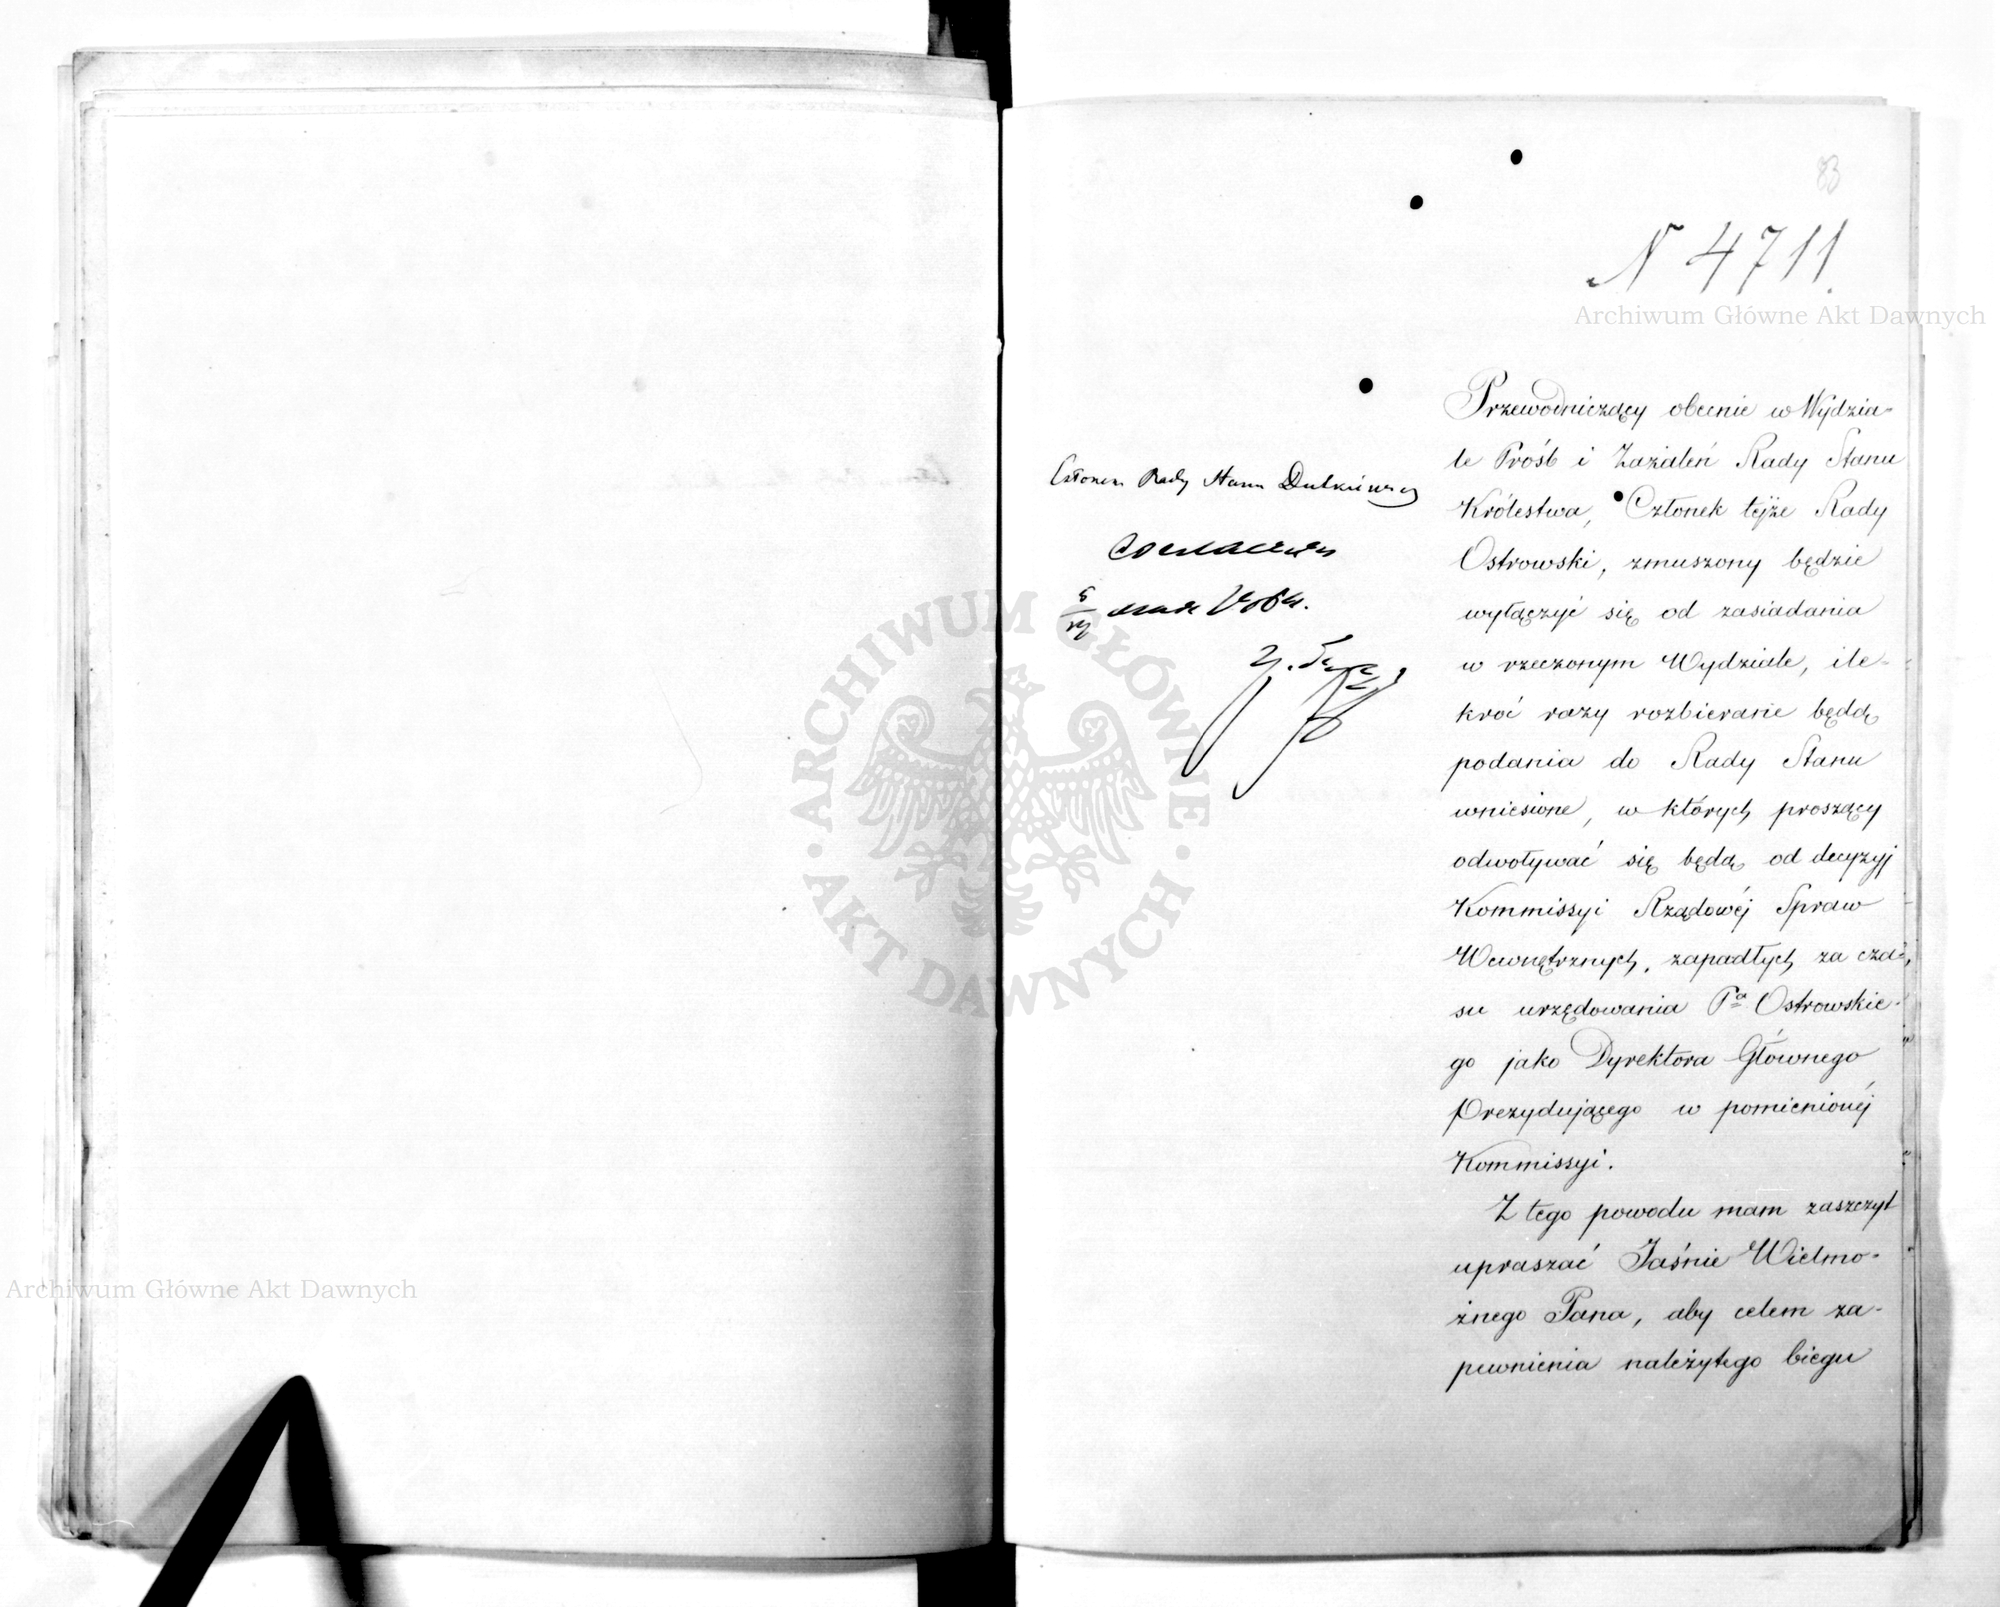 83
N 4711.
Archiwum Główne Akt Dawnych
Przewodniczący obecnie w Wydzia-
le Próśb i Zażaleń Rady Stanu
Królestwa, Członek tejże Rady
Ostrowski, zmuszony będzie
wyłączyć się od zasiadania
w rzeczonym Wydziale, ile-
kroć razy rozbierane będą
podania do Rady Stanu
wniesione, w których proszący
odwoływać się będą od decyzyj
Kommissyi Rządowéj Spraw
Wewnętrznych, zapadłych za cza-
su urzędowania Pa Ostrowskie-
go jako Dyrektora Głównego
Prezydującego w pomienionéj
Kommissyi.
Z tego powodu mam zaszczyt
upraszać Jaśnie Wielmo-
żnego Pana, aby celem za-
pewnienia należytego biegu
Członek Rady Stanu Dutkiewicz
ARCHIWUM GŁÓWNE
AKT DAWNYCH
Archiwum Główne Akt Dawnych